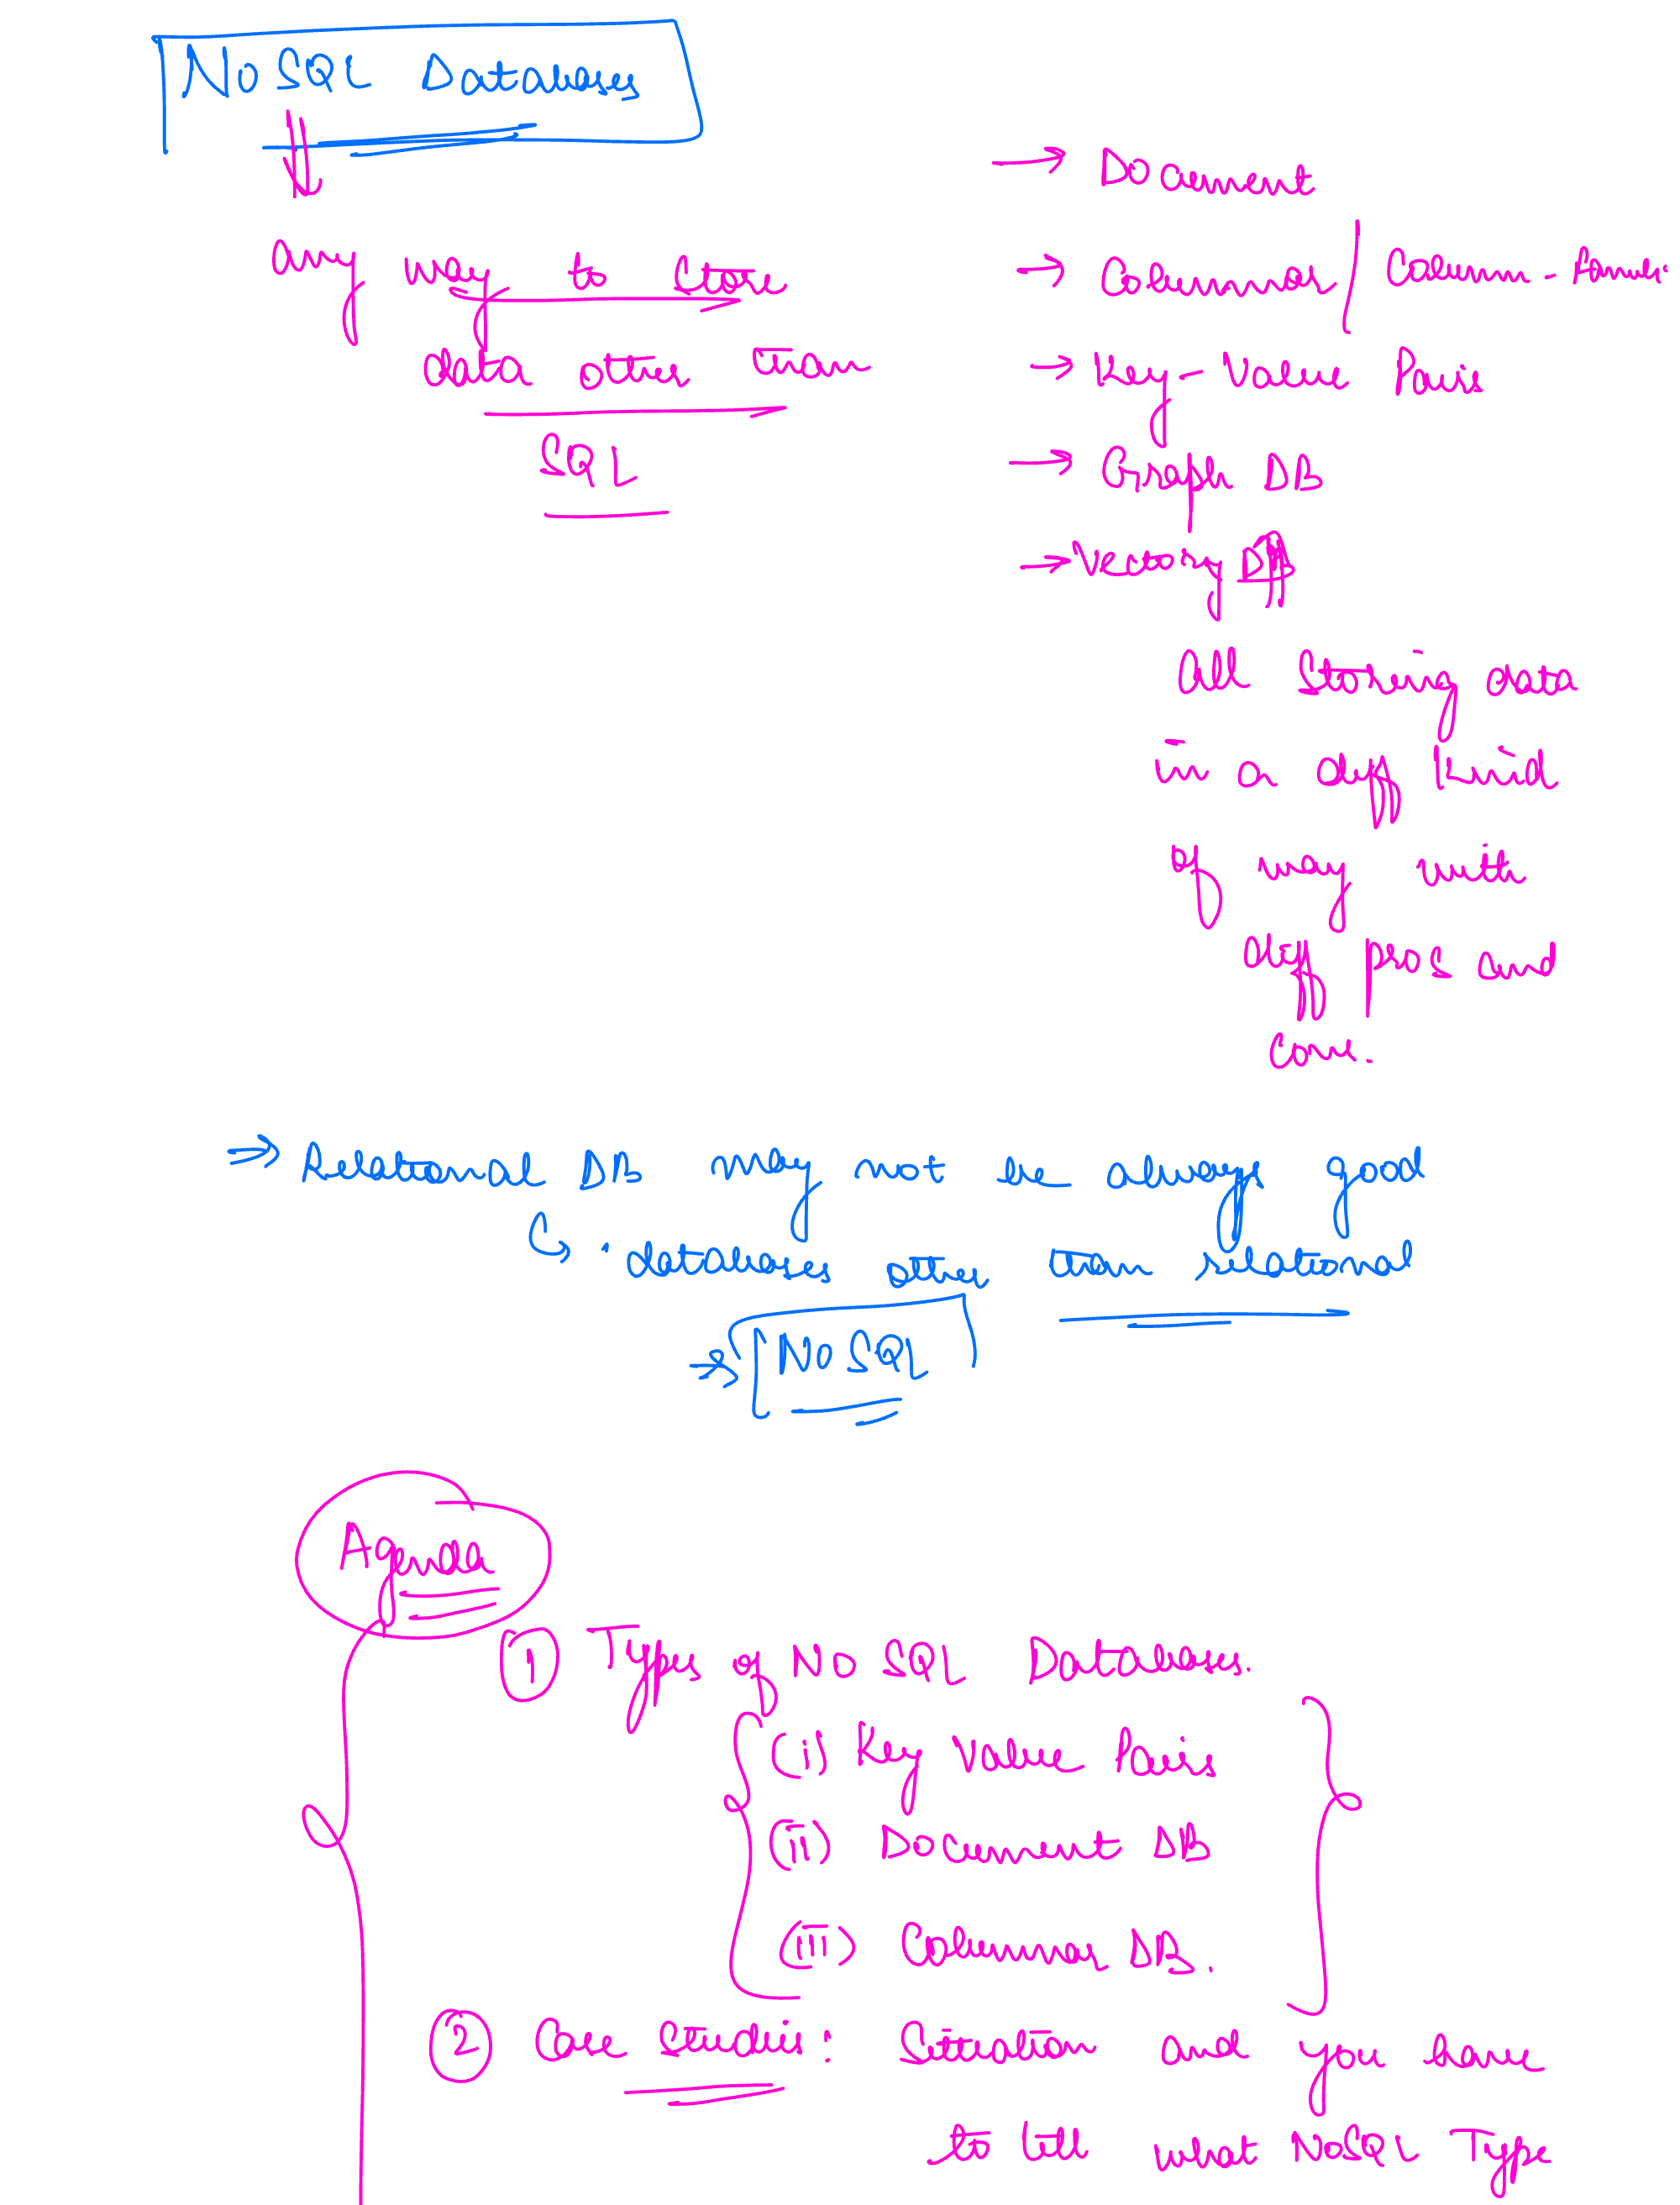 NoSQL Databases
any way to store
data other than
SQL
→ Document
→ Columnar / Column-Famili
→ Key-Value Pairs
→ Graph DB
→ Vector DB
all storing data
in a diff kind
of way with
diff pros and
cons.
⇒ Relational DB may not be always good
↳ databases other than relational
→ NoSQL
Agenda
① Types of NO SQL Databases.
(i) Key Value Pairs
(ii) Document DB
(iii) Columnar DB.
② Case Studies: Situation and you have
to tell what NoSQL Type